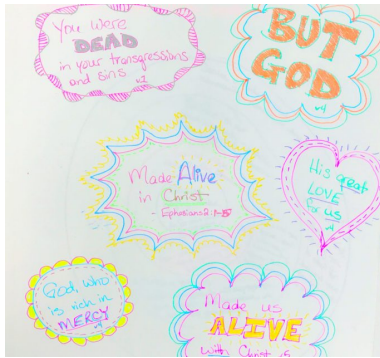 You were
DEAD
in your transgressions
and sins v2
BUT
GOD
v4
Made Alive
in Christ
- Ephesians 2:1-5
His great
LOVE
for us
v4
God, who
is rich in
MERCY
v4
Made us
ALIVE
with Christ